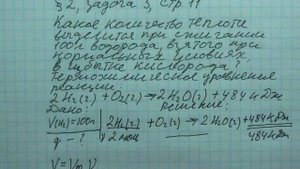 §2, задача 3, стр. 11
Какое количество теплоты
выделится при сжигании
100л водорода, взятого при
нормальных условиях
в избытке кислорода?
Термохимическое уравнение
реакции:
2H₂(г.) + O₂(г.) → 2H₂O(г.) + 484 кДж
Дано: Решение:
V(H₂) = 100л 2H₂(г.) + O₂(г.) → 2H₂O(г.) + 484 кДж
q - ? 2 моль 484 кДж
V = Vm ν